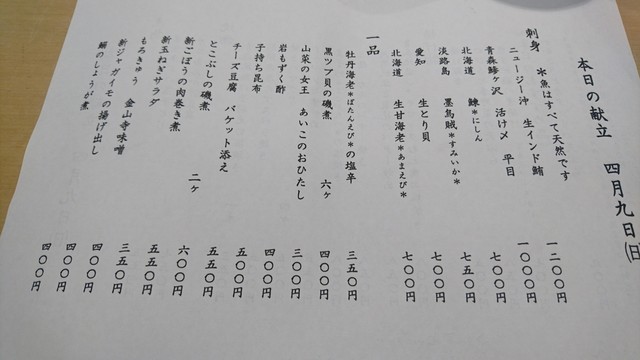 本日の献立 四月九日(日)
刺身 *魚はすべて天然です
ニュージー沖 生インド鮪 一二〇〇円
青森鰺ヶ沢 活け〆 平目 一〇〇〇円
北海道 鰊*にしん 七〇〇円
淡路島 墨烏賊*すみいか* 七五〇円
愛知 生とり貝 七〇〇円
北海道 生甘海老*あまえび* 七〇〇円
一品
牡丹海老*ぼたんえび*の塩辛 三五〇円
黒ツブ貝の磯煮 六ヶ 四〇〇円
山菜の女王 あいこのおひたし 三〇〇円
岩もずく酢 四〇〇円
子持ち昆布 五〇〇円
チーズ豆腐 バケット添え 五五〇円
とこぶしの磯煮 二ヶ 六〇〇円
新ごぼうの肉巻き煮 五五〇円
新玉ねぎサラダ 三五〇円
もろきゅう 金山寺味噌 四〇〇円
新ジャガイモの揚げ出し 四〇〇円
鰯のしょうが煮 四〇〇円